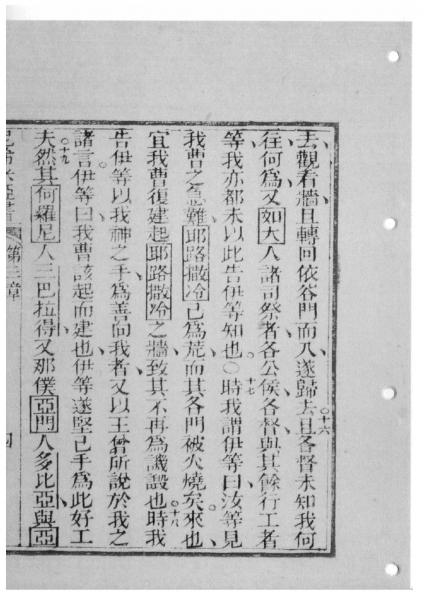 去觀看牆且轉回依谷門而入遂歸去○十六且各督未知我何
往何為又如大人諸司祭者各公侯各督與其餘行工者
等我亦都未以此告伊等知也○十七時我謂伊等曰汝等見
我曹之急難耶路撒冷已為荒而其各門被火燒矣來也
宜我曹復建起耶路撒冷之牆致其不再為譏毀也○十八時我
告伊等以我神之手為善向我者又以王曾所說於我之
諸言伊等曰我曹該起而建也伊等遂堅己手為此好工
○十九夫然其何羅尼人三巴拉得又那僕亞門人多比亞與亞
第二章